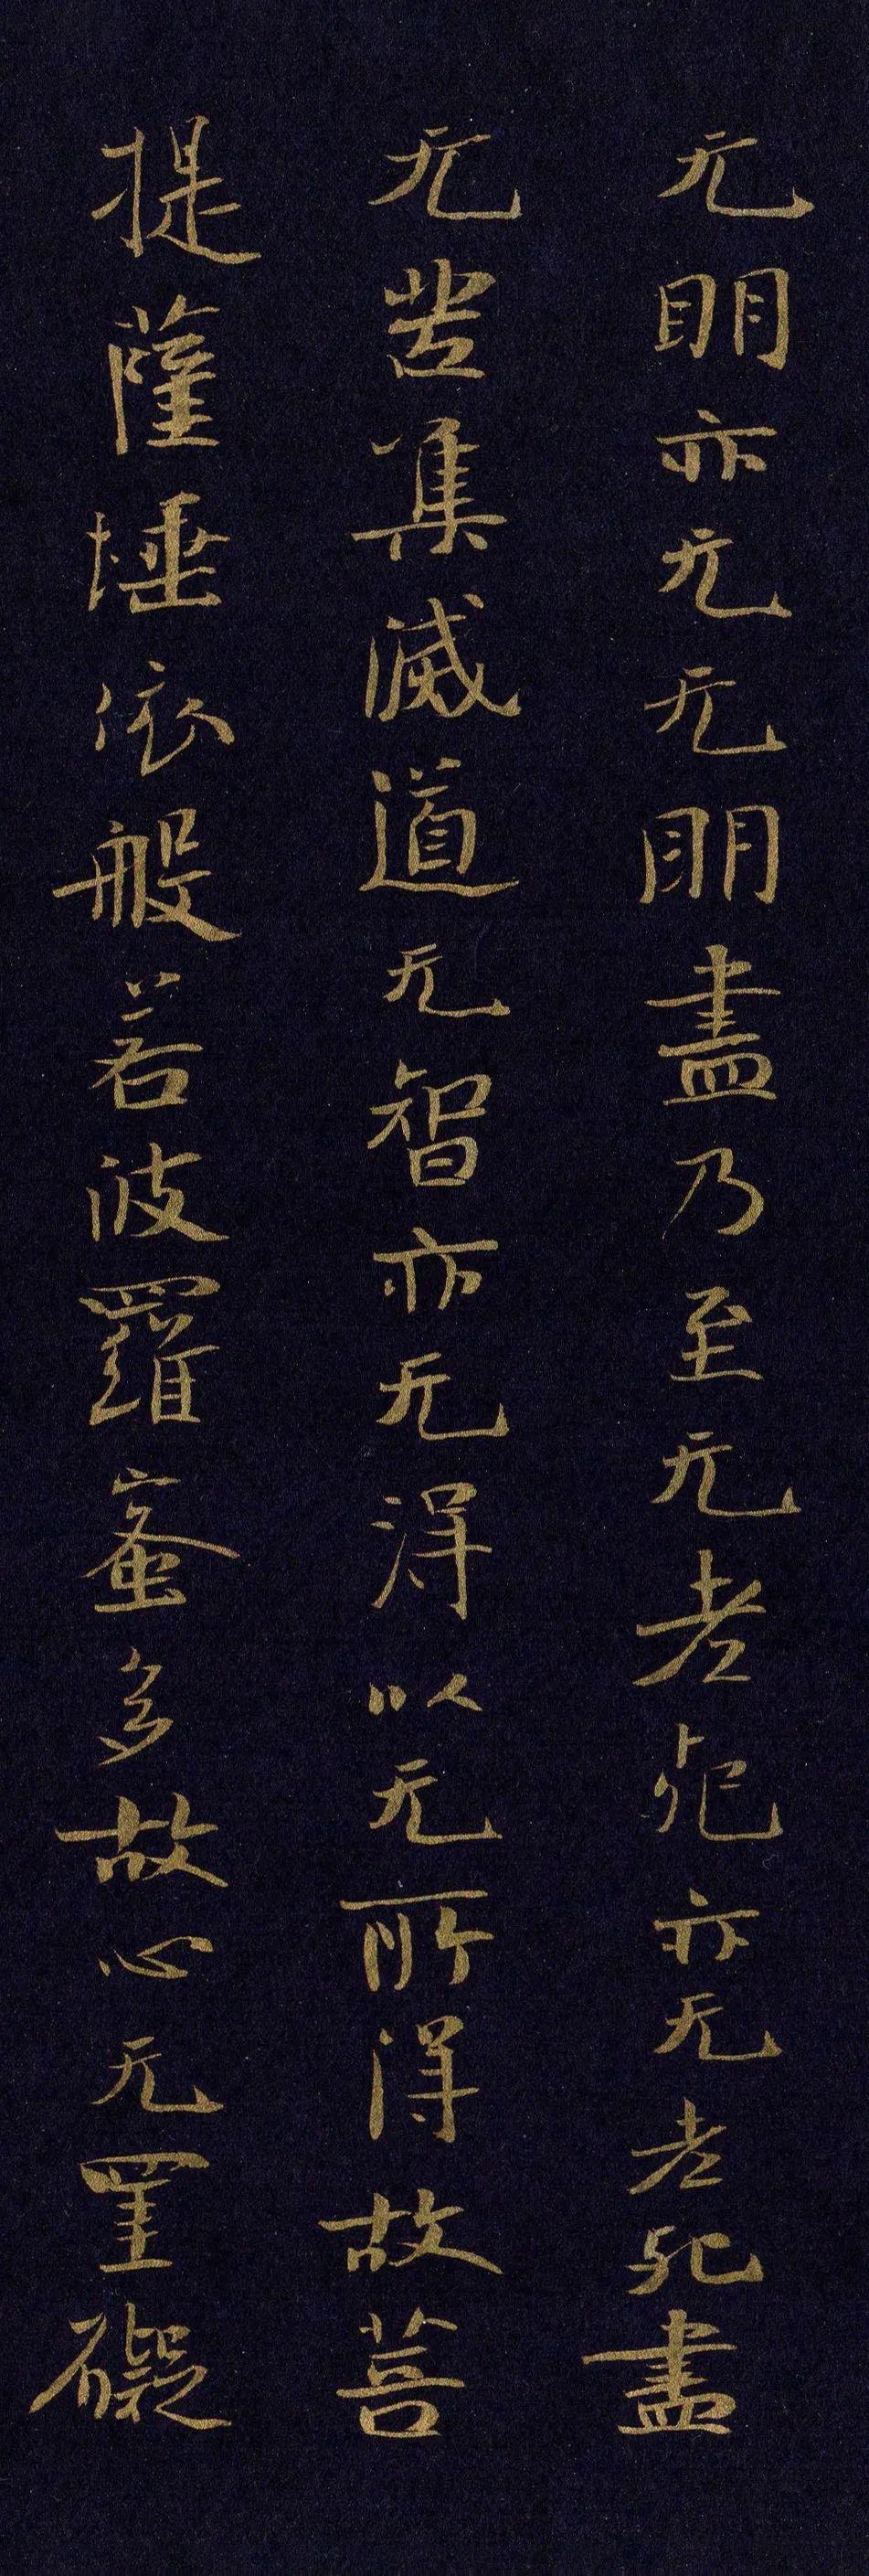 无明亦无无明盡乃至无老死亦无老死盡
无苦集滅道无智亦无得以无所得故菩
提薩埵依般若波羅蜜多故心无罣礙